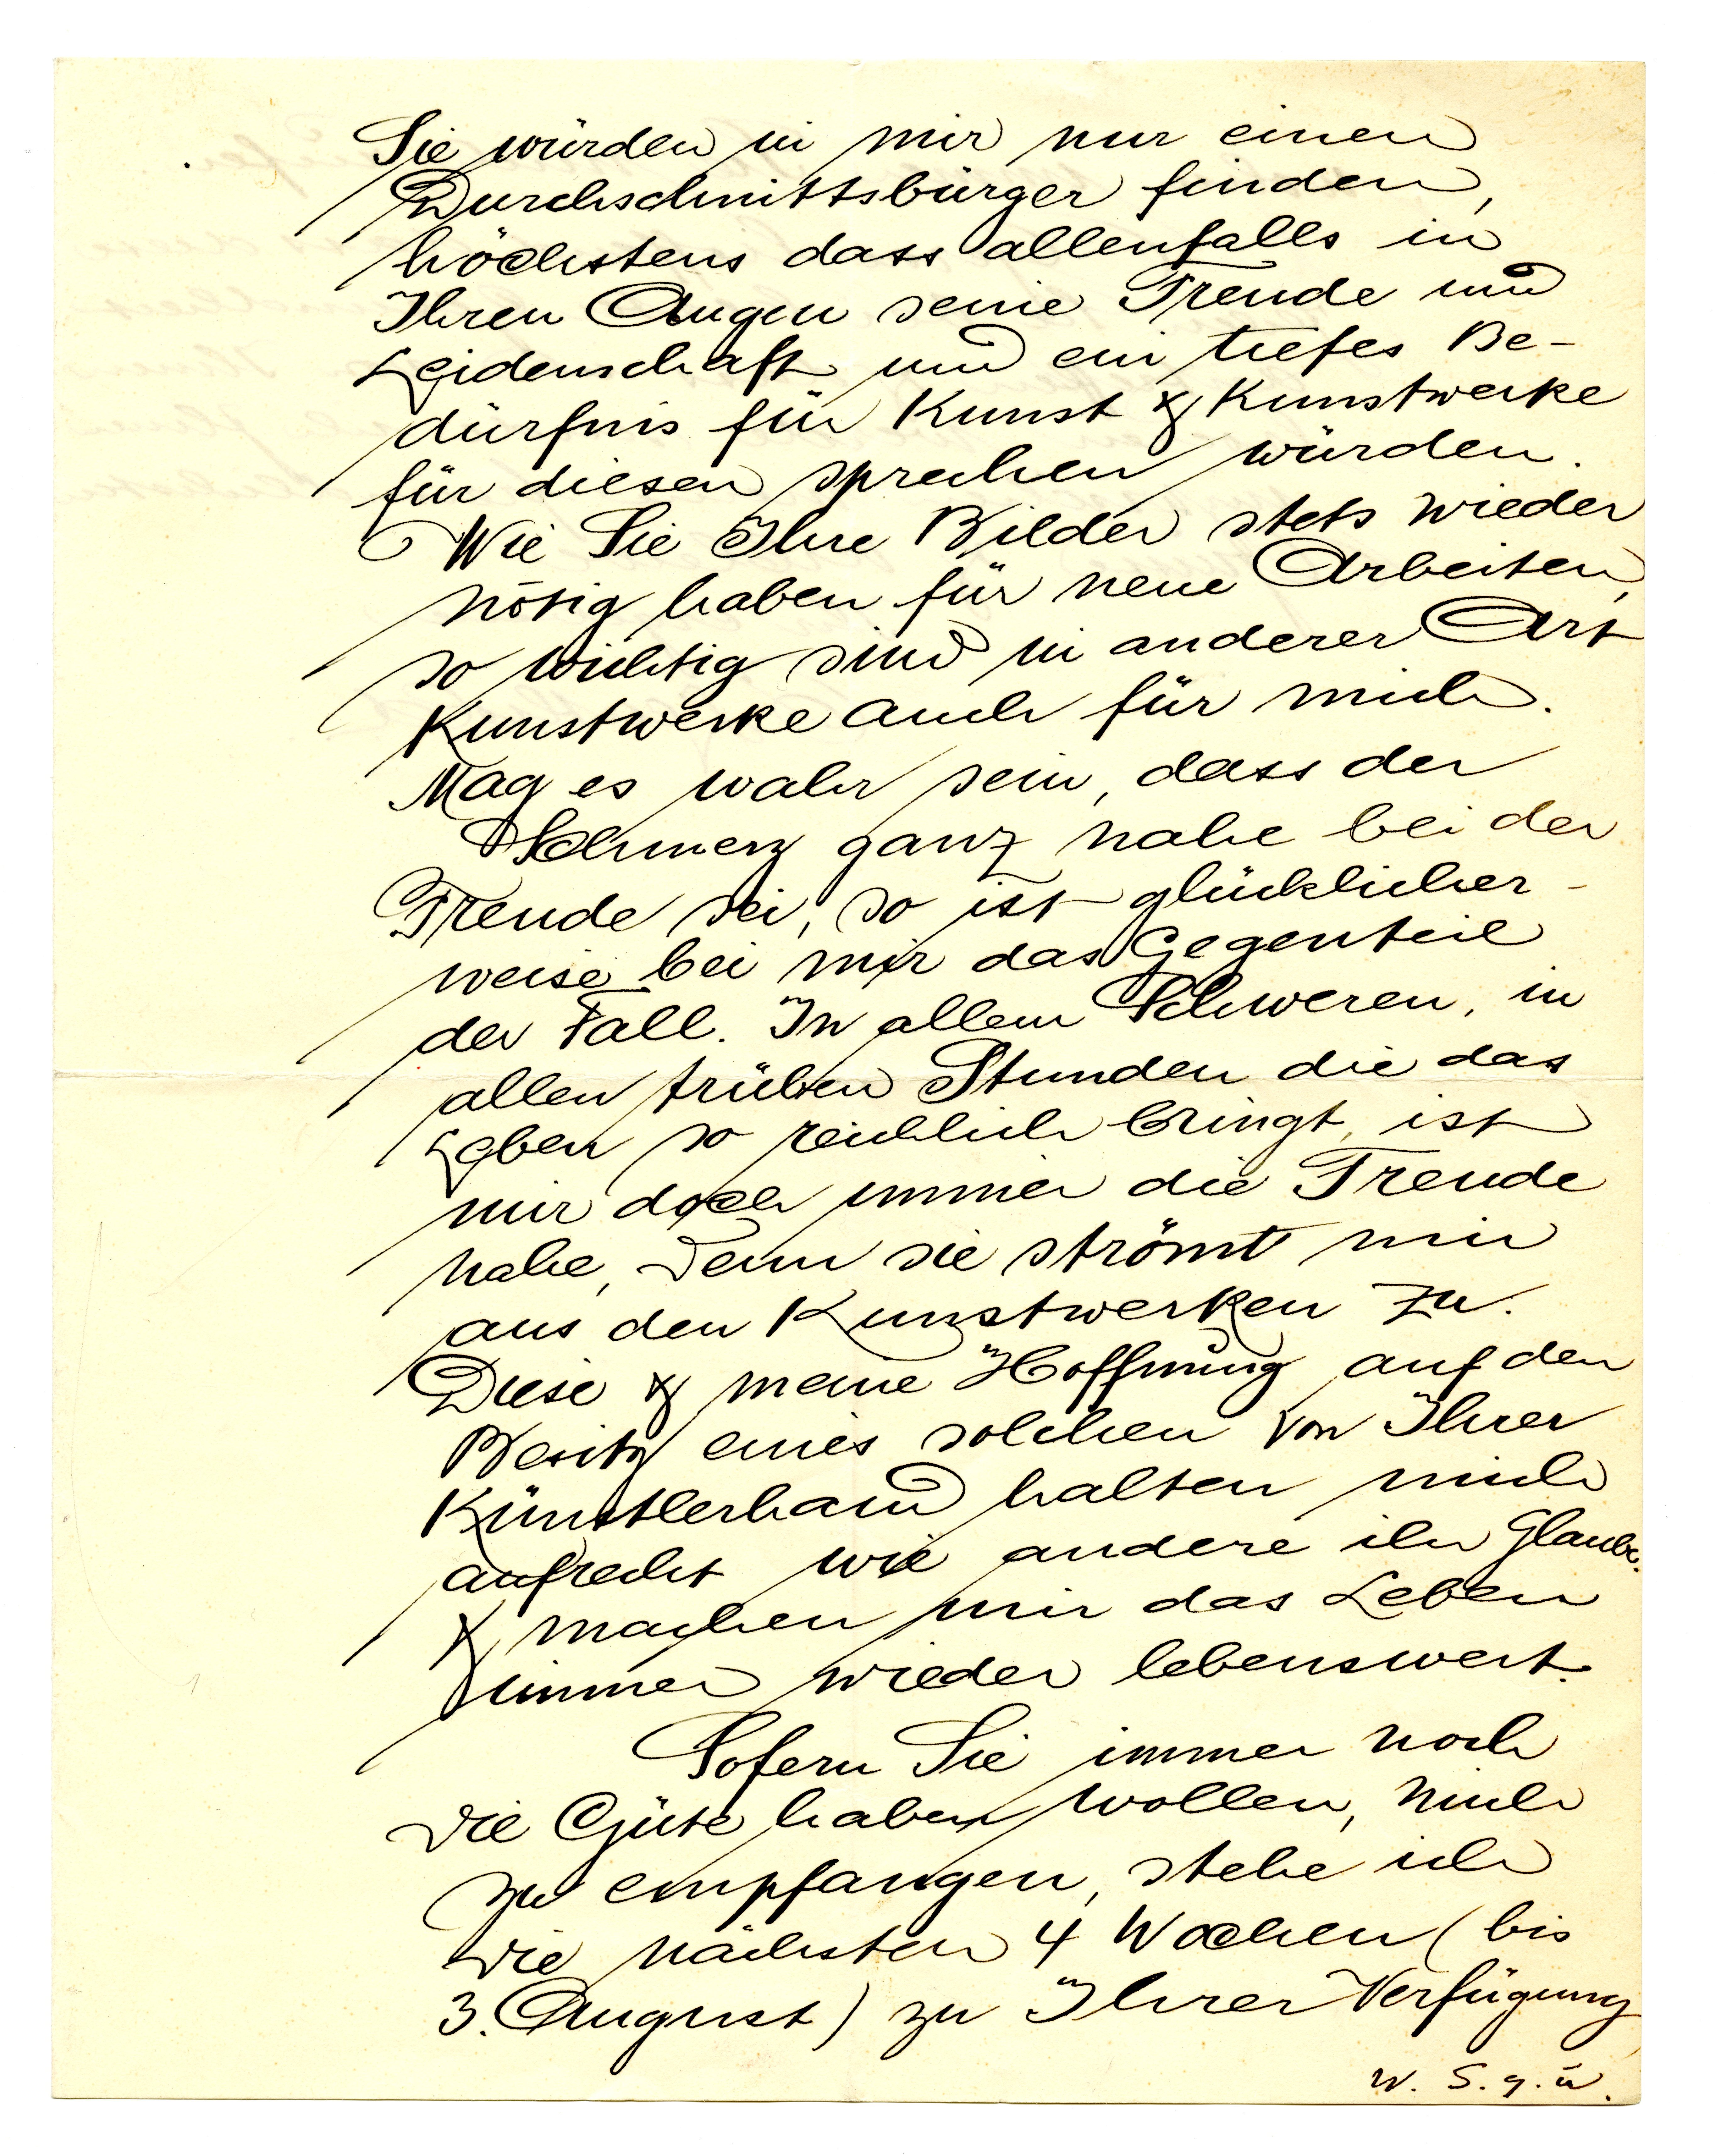 Sie würden in mir nur einen
Durchschnittsbürger finden,
höchstens dass allenfalls in
Ihren Augen seine Freude und
Leidenschaft und ein tiefes Be-
dürfnis für Kunst & Kunstwerke
für diesen sprechen würden.
Wie Sie Ihre Bilder stets wieder
nötig haben für neue Arbeiten,
so wichtig sind in anderer Art
Kunstwerke auch für mich.
Mag es wahr sein, dass der
Schmerz ganz nahe bei der
Freude sei, so ist glücklicher-
weise bei mir das Gegenteil
der Fall. In allem Schweren, in
allen trüben Stunden die das
Leben so reichlich bringt, ist
mir doch immer die Freude
nahe, denn sie strömt mir
aus den Kunstwerken zu.
Diese & meine Hoffnung auf den
Besitz eines solchen von Ihrer
Künstlerhand halten mich
aufrecht wie andere ihr Glaube.
& machen mir das Leben
immer wieder lebenswert.
Sofern Sie immer noch
die Güte haben wollen, mich
zu empfangen, stehe ich
die nächsten 4 Wochen (bis
3. August) zu Ihrer Verfügung
W. S. g. ü.